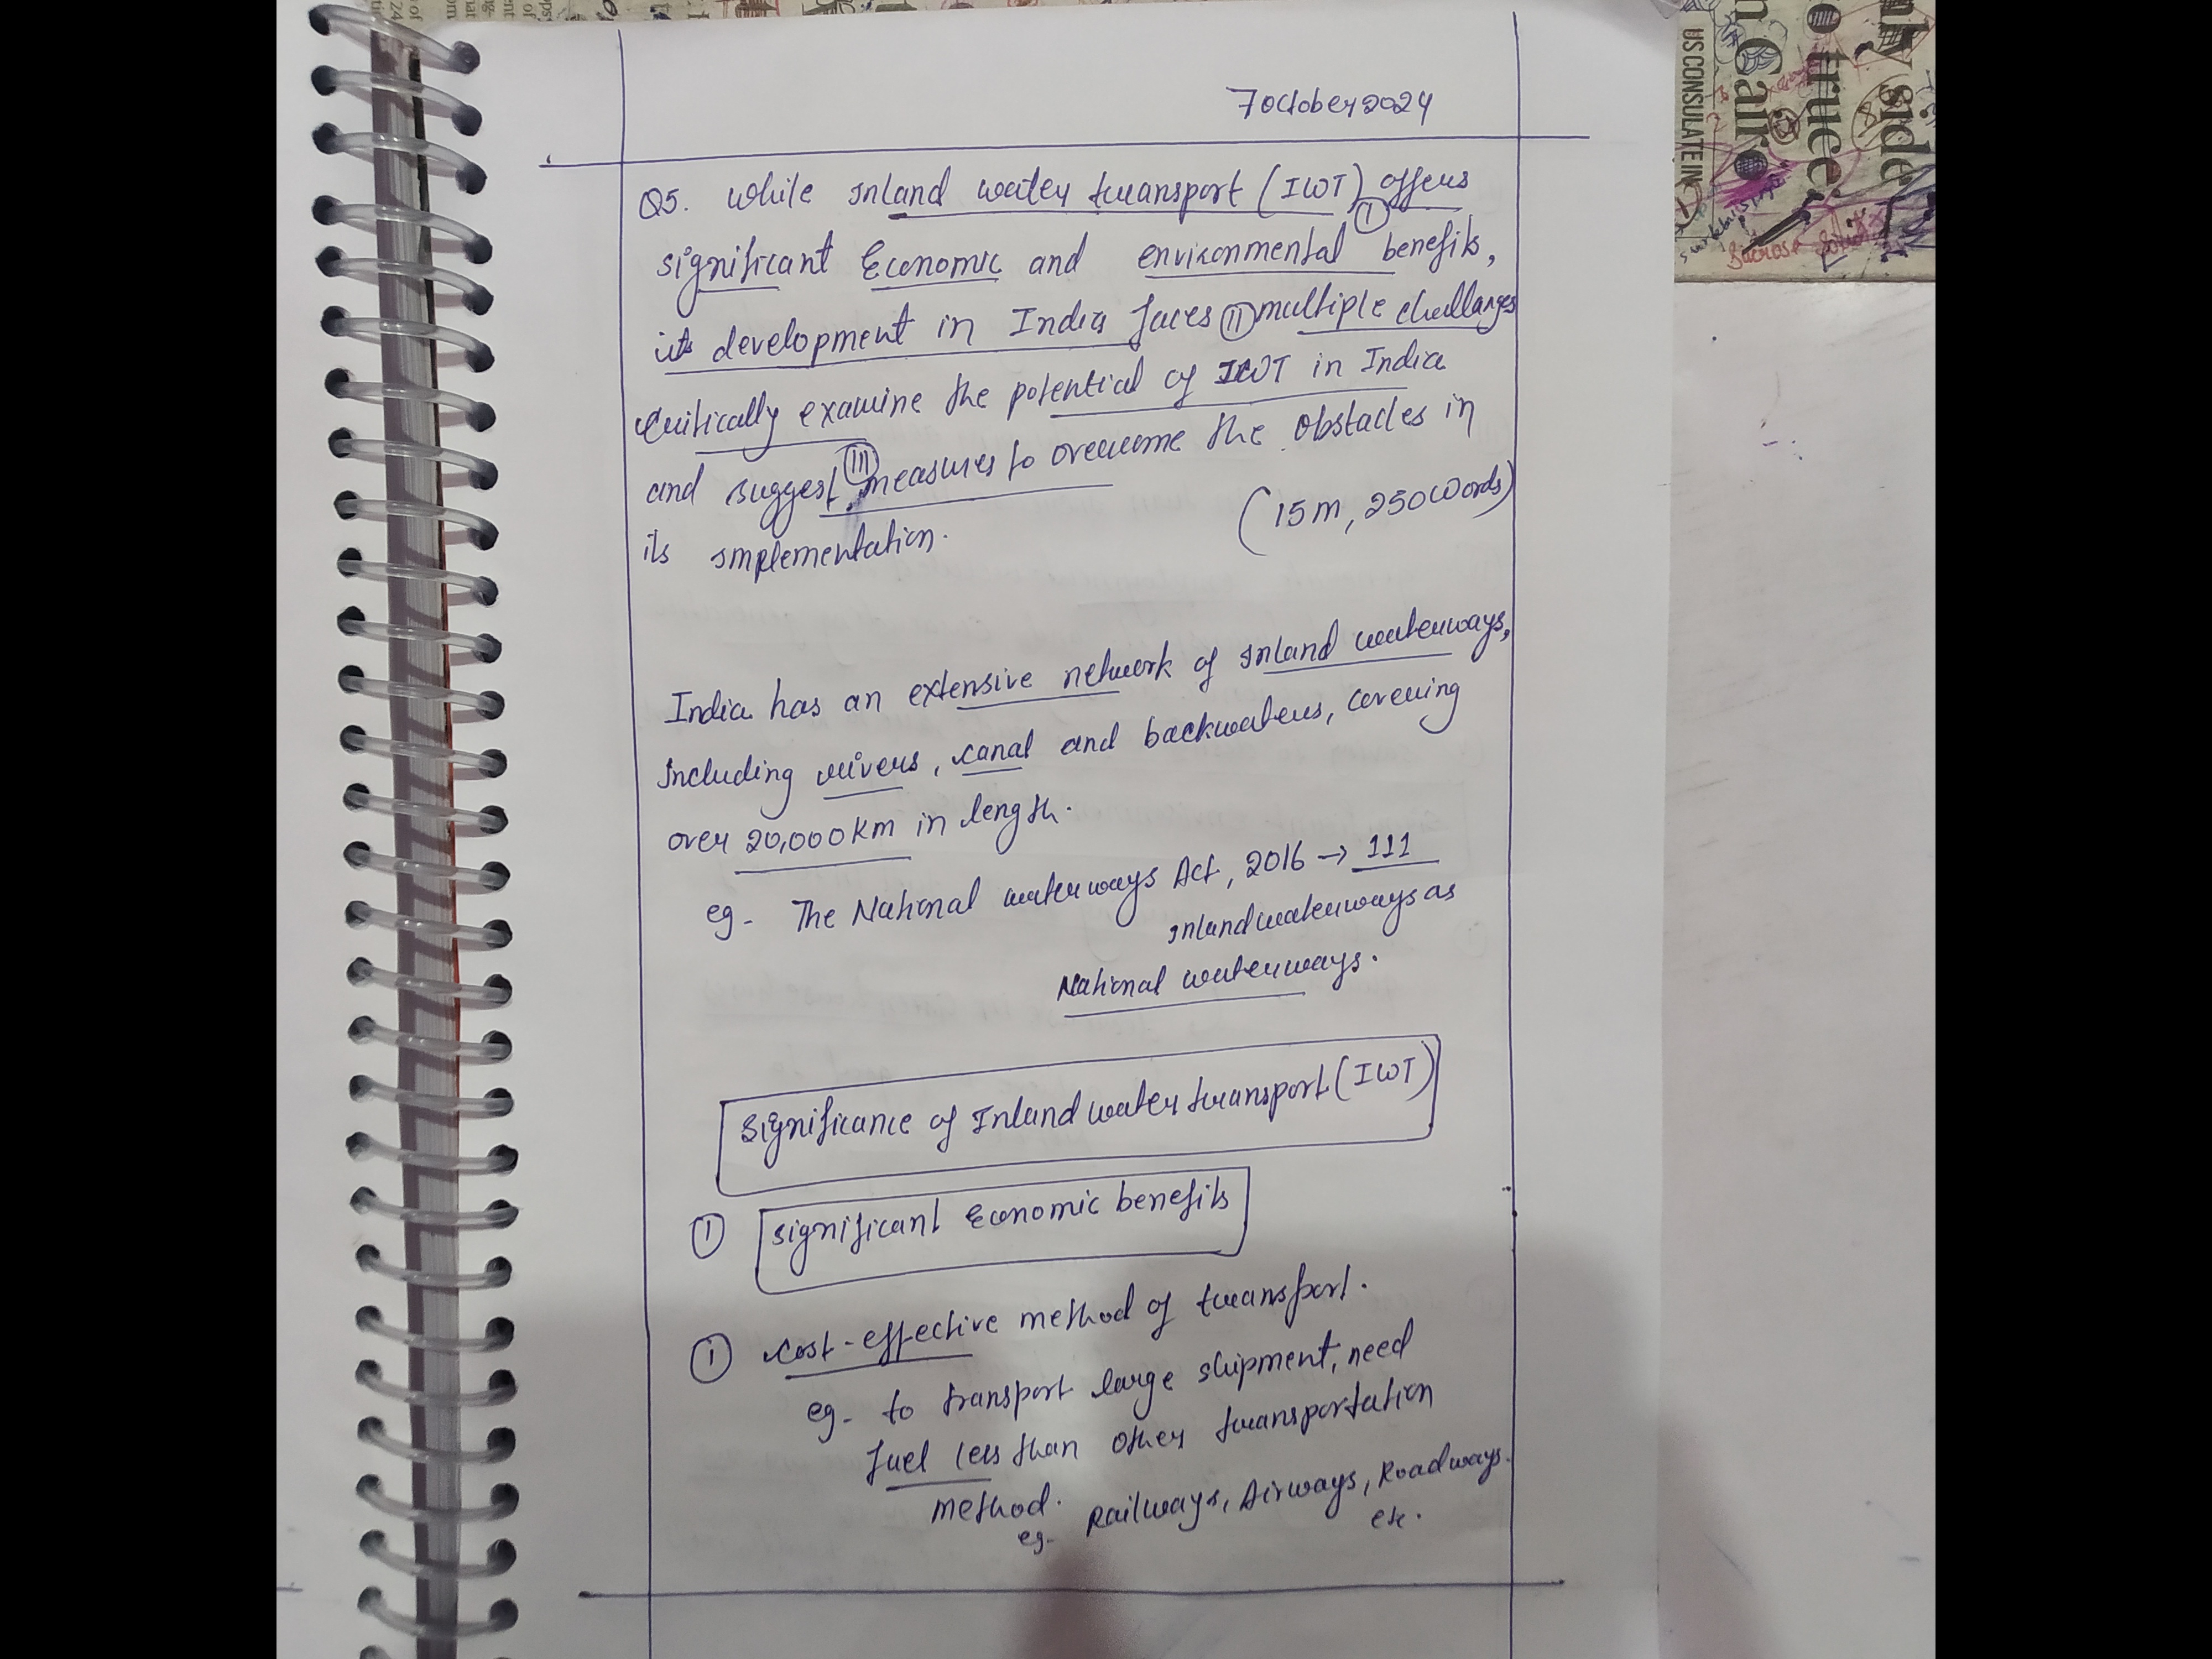 7 October 2024
Q5. While Inland water transport (IWT) offers
I
significant Economic and environmental benefits,
its development in India faces II multiple challanges
Critically examine the potential of IWT in India
and suggest III measures to overcome the obstacles in
its implementation.
(15m, 250 words)
India has an extensive network of inland waterways,
Including rivers, canal and backwaters, covering
over 20,000 km in length.
eg- The National waterways Act, 2016 → 111
Inland waterways as
National waterways.
Significance of Inland water transport (IWT)
1 significant Economic benefits
i cost-effective method of transport.
eg- to transport large shipment, need
fuel less than other transportation
method.
eg- Railways, Airways, Roadways.
etc.
US CONSULATE IN
n Cairo
o truce,
side
Sucrose